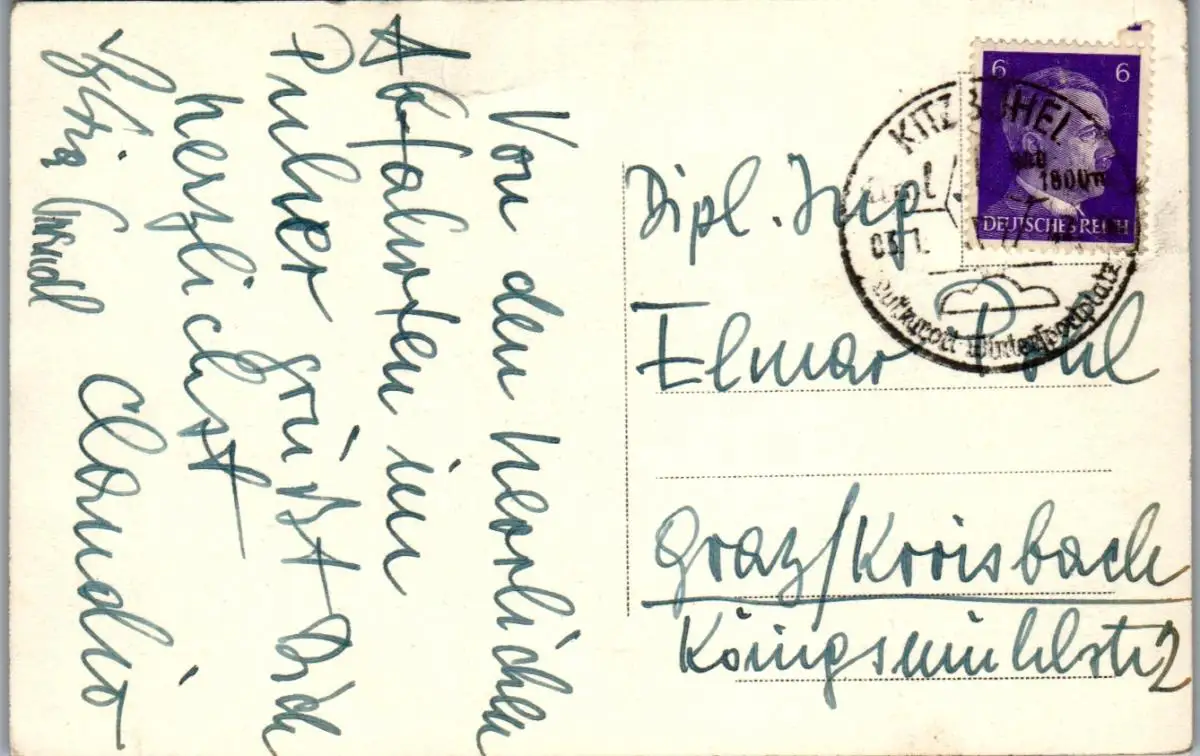 Von den herrlichen
Abfahrten im
Pulver grüßt Dich
herzlichst
Claudio
Dipl. Ing
Elmar Pohl
Graz/Kroisbach
Königsmühlstr 2
6 6
DEUTSCHES REICH
KITZBÜHEL
1800m
Luftkurort Wintersportplatz